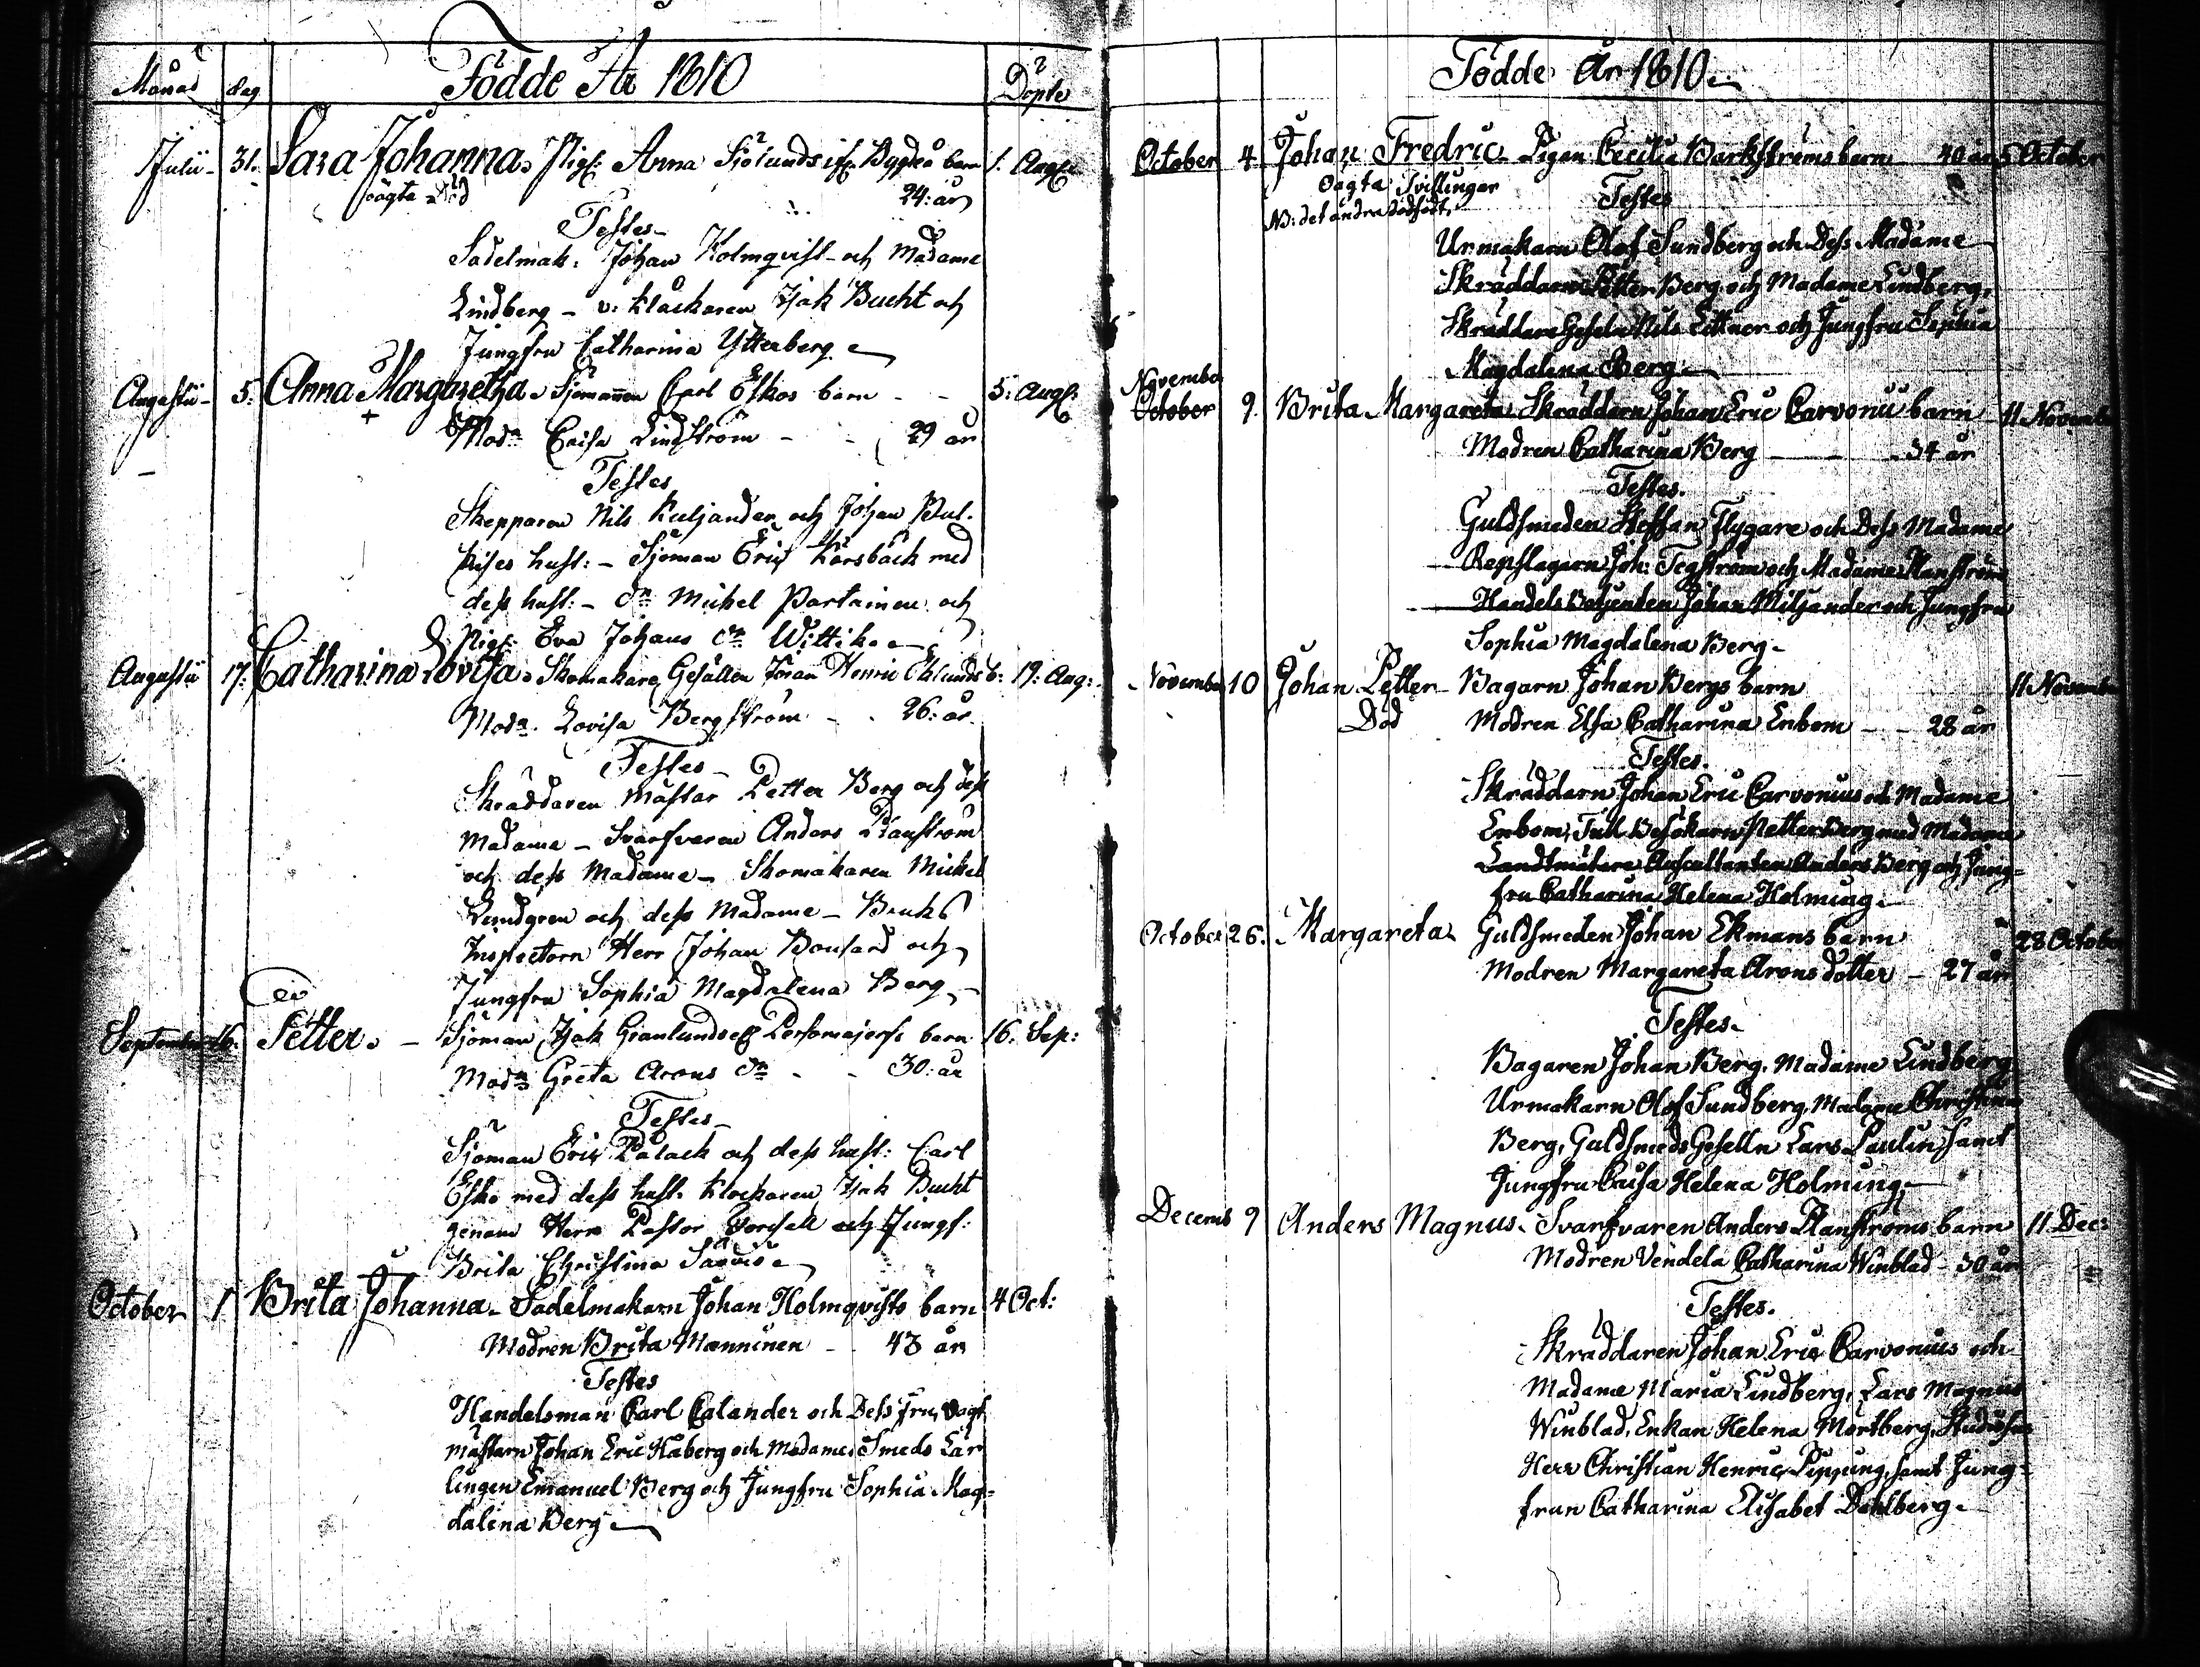 Månad Dag Födde År 1810 Döpte
Julii 31. Sara Johanna. Pig: Anna Sjölunds if Bygdeå barn 1. Aug:
oägta Död 24: år
Testes
Sadelmak: Johan Holmqvist och Madame
Lindberg – v: Klåckaren Isak Bucht och
Jungfru Catharina Ytterberg
Augustii 5. Anna Margaretha. Sjömannen Carl Eskos barn 5: Aug:
+ Mod:n Caisa Lindström 29 år
Testes
Skepparen Nils Kuljander och Johan Pul-
kises hust: – Sjöman Eric Karsbäck med
dess hust: – Dn Mickel Partainen och
Pig: Eva Johans dr Wittik
Augustii 17. Catharina Lovisa. Skomakare Gesällen Johan Henric Eklunds b: 19: Aug:
Modn. Lovisa Bergström 26: år
Testes
Skräddaren Mästar Petter Berg och dess
Madame – Svarfvaren Anders Planström
och dess Madame – Skomakaren Mickel
Lundgren och dess Madame – Bruks
Inspectorn Herr Johan Bonsard och
Jungfru Sophia Magdalena Berg
September 16. Petter. – Sjöman Isak Granlunds barn 16. Sep:
Modn Greta Arons dr 30: år
Testes
Sjöman Eric Palack och dess hust: Carl
Esko med dess hust. Klockaren Isak Bucht
genom Herr Pastor och Jungf:
Brita Christina
October 1 Brita Johanna. Sadelmakarn Johan Holmqvists barn 4 Oct:
Modren Brita Manninen 43 år
Testes
Handelsman Carl Calander och Dess fru, Vagt
mästarn Johan Eric Håberg och Madame. Smeds Lär
lingen Emanuel Berg och Jungfru Sophia Mag-
dalena Berg
Födde År 1810
October 4. Johan Fredric Pigan Cecilia Barkströms barn 40 år 5 October
Oägta Tvillingar
NB: det andra dödfödt.
Testes
Urmakarn Olof Sundberg och Dess Madame
Skräddarn Petter Berg och Madame Lindberg,
Skräddare Geseln Nils Littner och Jungfru Sophia
Magdalena Berg
November
October 9. Brita Margareta Skräddarn Johan Eric Carvonii barn 11 November
Modren Catharina Berg 34 år
Testes.
Guldsmeden Steffan Flygare och Dess Madame
Repslagarn Joh: Tegström och Madame Planström
Handels Betjenten Johan Miljander och Jungfru
Sophia Magdalena Berg
November 10 Johan Petter Bagarn Johan Bergs barn 11 November
Död Modren Elsa Catharina Enbom 28 år
Testes.
Skräddarn Johan Eric Carvonius och Madame
Enbom, Tull Besökarn Petter Berg med Madame
Landtmätare Auscultanten Anders Berg och Jung-
fru Catharina Helena Holming
October 26. Margareta Guldsmeden Johan Ekmans barn 28 October
Modren Margareta Arons dotter 27 år
Testes
Bagaren Johan Berg, Madame Lindberg
Urmakarn Olof Sundberg, Madame Christina
Berg, Guldsmeds Geselln Lars Paulin samt
Jungfru Caisa Helena Holming
Decemb 9 Anders Magnus. Svarfvaren Anders Planströms barn 11 Dec:
Modren Vendela Catharina Winblad 30 år
Testes.
Skräddaren Johan Eric Carvonius och
Madame Maria Lindberg, Lars Magnus
Winblad, Enkan Helena Mörtberg,
Herr Christian Henric Pipping, samt Jung-
frun Catharina Elisabet Dahlberg